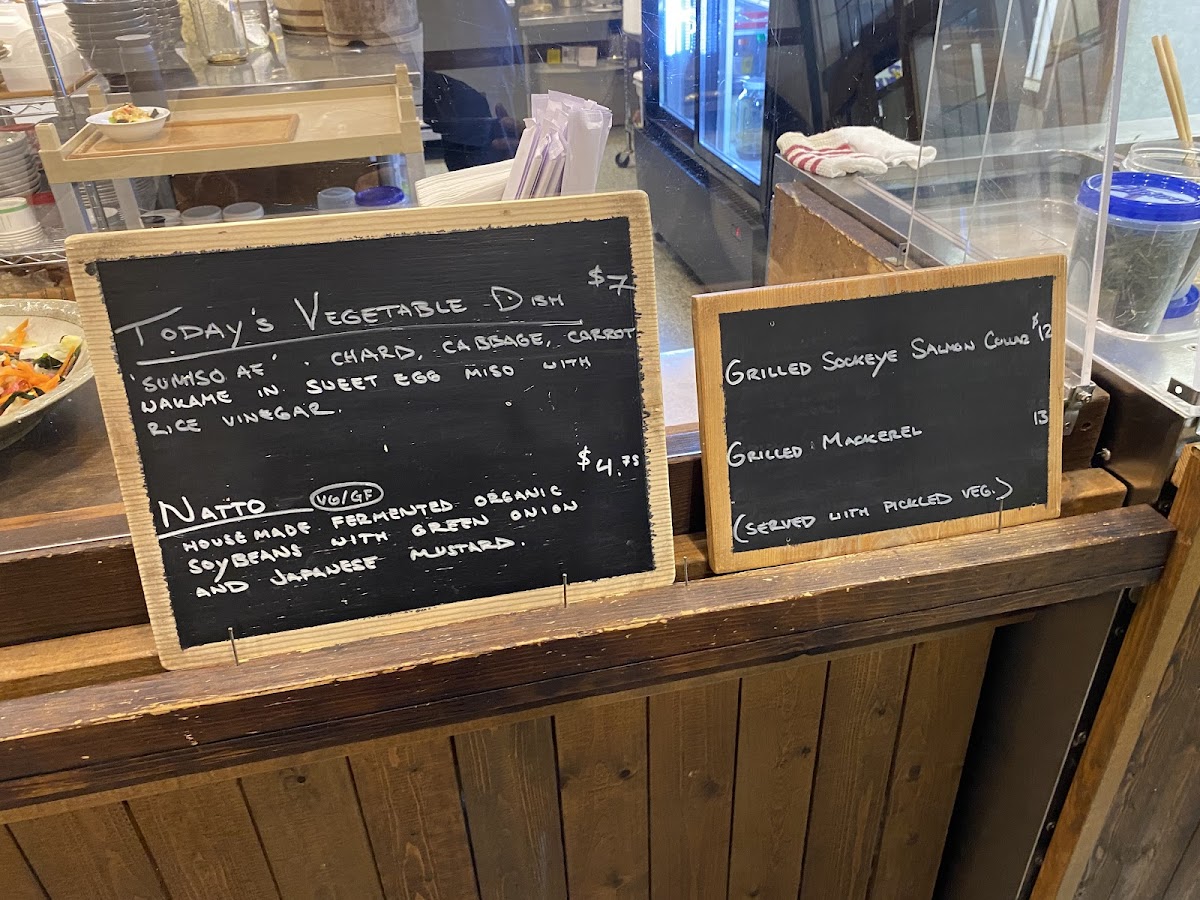 $7
Today's Vegetable Dish
'Sumiso Ae' . Chard, Cabbage, Carrot
Wakame in Sweet Egg Miso with
Rice Vinegar.
$4.75
Natto VG/GF
House made fermented organic
soybeans with green onion
and Japanese mustard.
Grilled Sockeye Salmon Collar $12
Grilled Mackerel 13
(Served with pickled veg.)